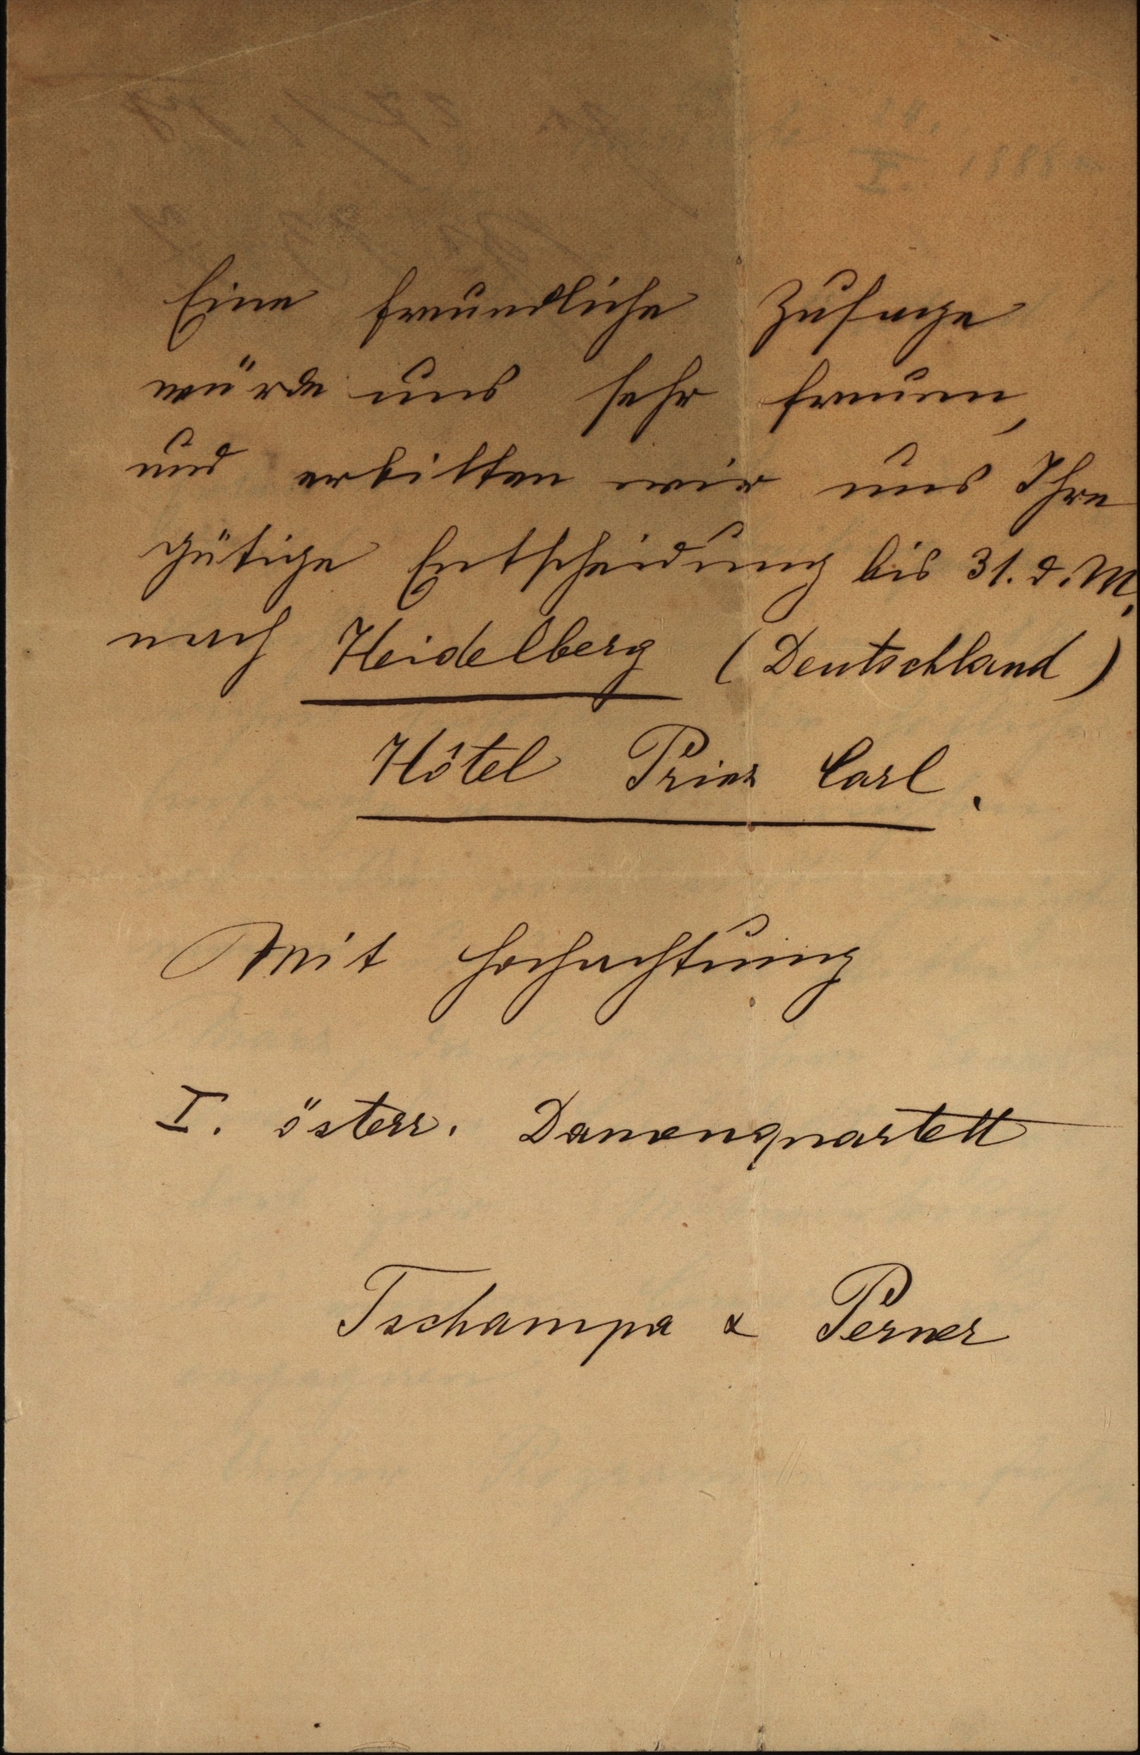 Eine freundliche Zusage
würde uns sehr freuen,
und erbitten wir uns Ihre
gütige Entscheidung bis 31. d. M.
nach Heidelberg (Deutschland)
Hôtel Prinz Carl.
Mit Hochachtung
I. österr. Damenquartett
Tschampa & Perner